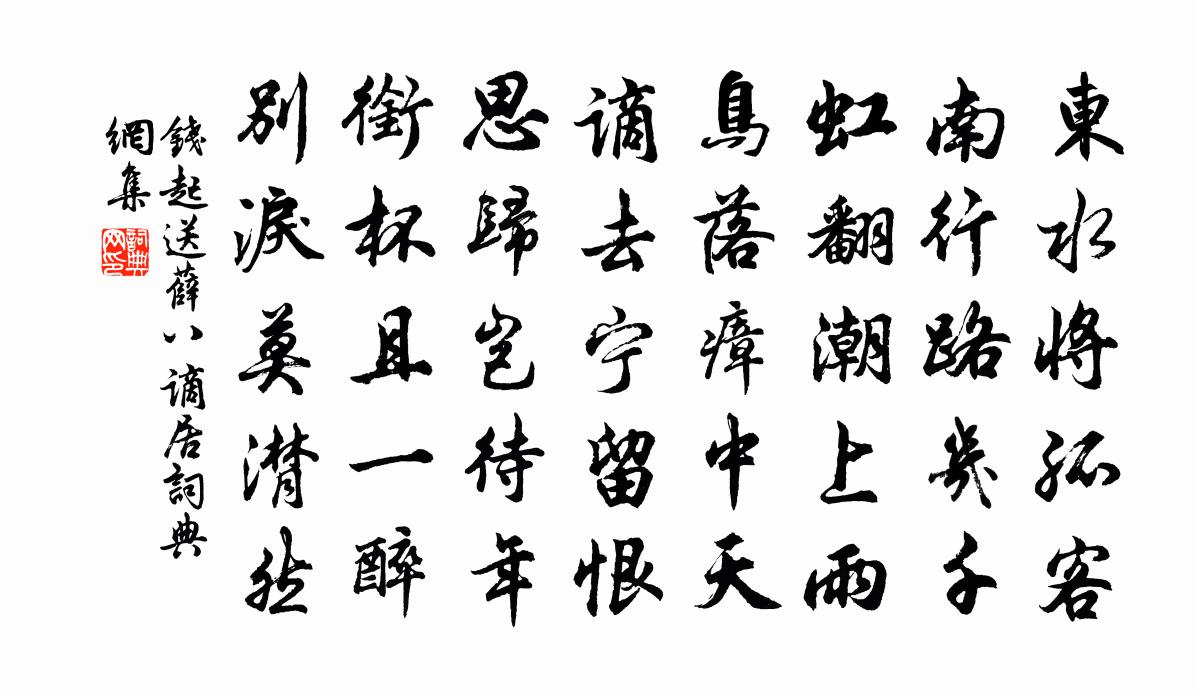 東水將孤客
南行路幾千
虹翻潮上雨
鳥落瘴中天
謫去宁留恨
思歸豈待年
銜杯且一醉
別淚莫潸然
錢起送薛八謫居詞典
網集
詞典
网印